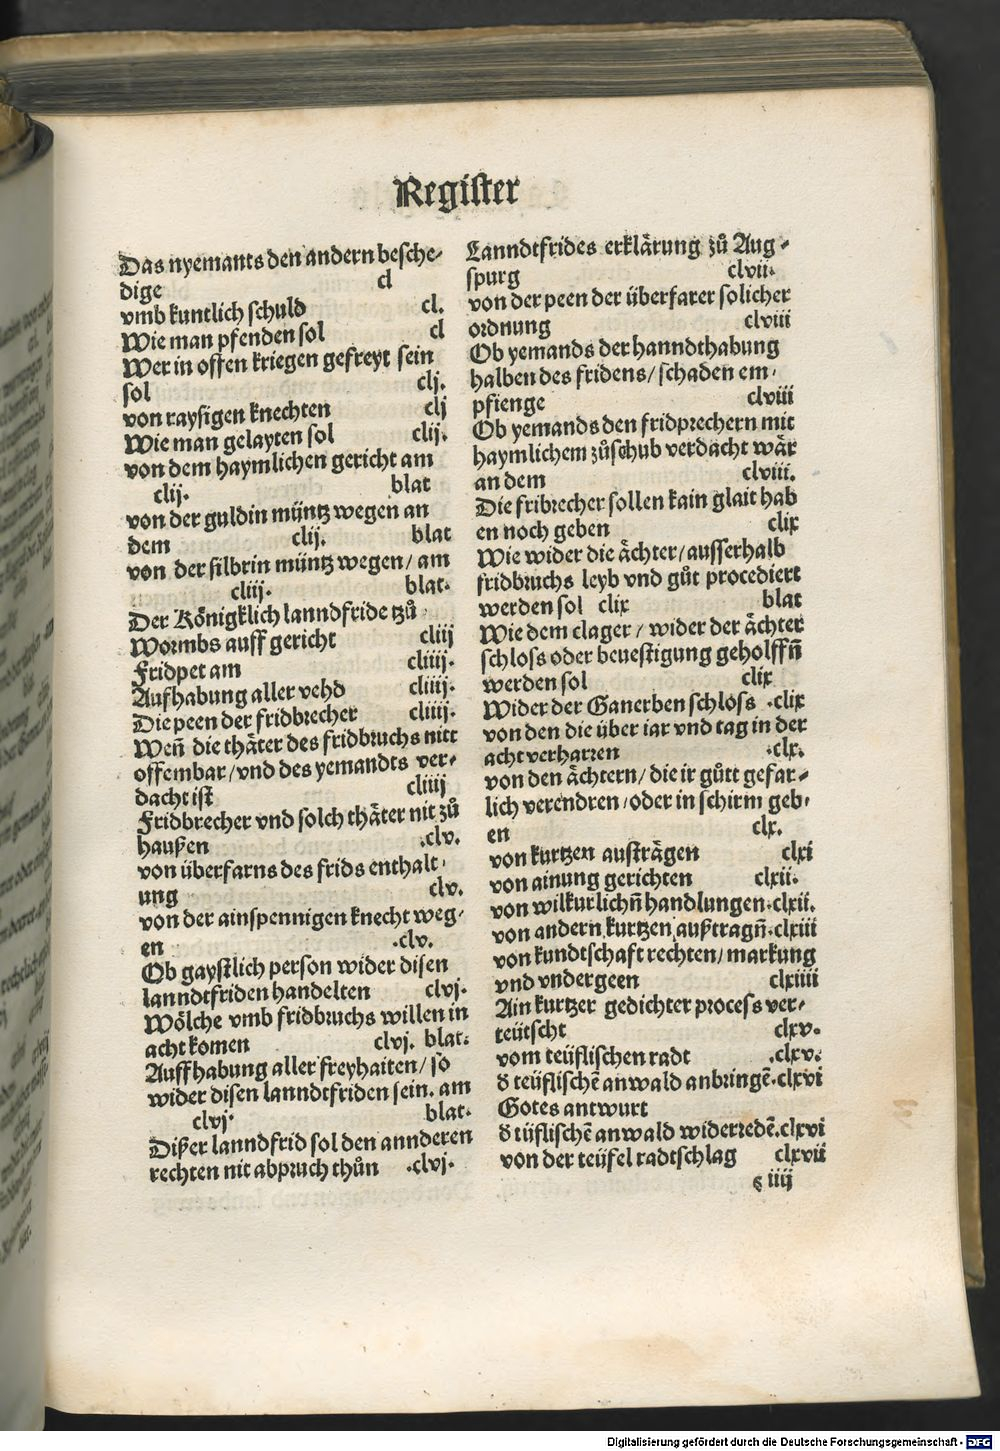 Register
Das nyemants den andern besche-
dige cl
vmb kuntlich schuld cl.
Wie man pfenden sol cl
Wer in offen kriegen gefreyt sein
sol clj.
von raysigen knechten clj
Wie man gelayten sol clij.
von dem haymlichen gericht am
clij. blat
von der guldin müntz wegen an
dem clij. blat
von der silbrin müntz wegen/ am
cliij. blat.
Der Königklich lanndfride tzů
Wormbs auff gericht cliij
Fridpet am cliiij.
Aufhabung aller vehd cliiij.
Die peen der fridbrecher cliiij.
Weñ die thäter des fridbruchs nitt
offembar/vnd des yemandts ver-
dacht ist cliiij
Fridbrecher vnd solch thäter nit zů
haußen .clv.
von überfarns des frids enthalt-
ung clv.
von der ainspennigen knecht weg-
en .clv.
Ob gaystlich person wider disen
lanndtfriden handelten clvj.
Wölche vmb fridbruchs willen in
acht komen clvj. blat.
Auffhabung aller freyhaiten/ so
wider disen lanndtfriden sein. am
clvj. blat.
Dißer lanndfrid sol den annderen
rechten nit abpruch thůn .clvj.
Lanndtfrides erklärung zů Aug-
spurg clvii.
von der peen der überfarer solicher
ordnung clviii
Ob yemands der hanndthabung
halben des fridens/ schaden em-
pfienge clviii
Ob yemands den fridprechern mit
haymlichem zůschub verdacht wär
an dem clviii.
Die fribrecher sollen kain glait hab
en noch geben clix
Wie wider die ächter/ ausserhalb
fridbruchs leyb vnd gůt procediert
werden sol clix blat
Wie dem clager / wider der ächter
schloss oder beuestigung geholffñ
werden sol clix
Wider der Ganerben schloss .clix
von den die über iar vnd tag in der
acht verharren .clx.
von den ächtern/ die ir gůtt gefar-
lich verendren/oder in schirm geb-
en clx.
von kurtzen austrägen clxi
von ainung gerichten clxii.
von wilkurlichñ handlungen.clxii.
von andern kurtzen außtragñ.clxiii
von kundtschaft rechten/ markung
vnd vndergeen clxiiii
Ain kurtzer gedichter process ver-
teütscht clxv.
vom teüflischen radt .clxv.
d teüflischē anwald anbringē.clxvi
Gotes antwurt
d tüflischē anwald widerredē.clxvi
von der teüfel radtschlag clxvii
ς iiij
Digitalisierung gefördert durch die Deutsche Forschungsgemeinschaft - DFG